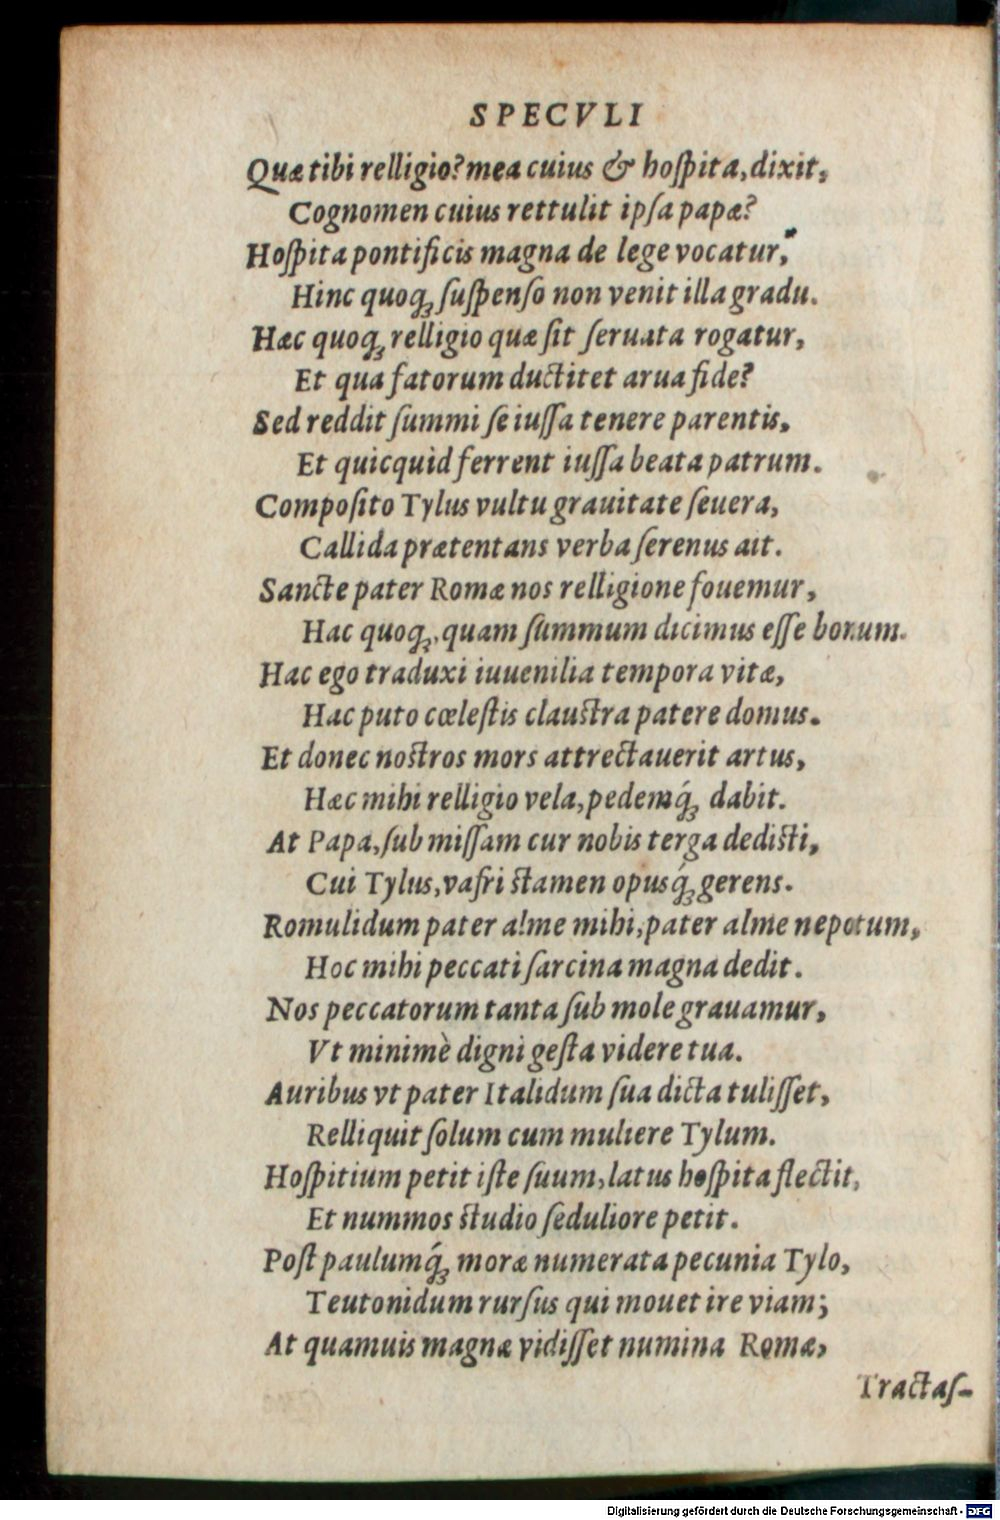 SPECVLI
Quæ tibi relligio? mea cuius & hoſpita, dixit,
Cognomen cuius rettulit ipſa papæ?
Hoſpita pontificis magna de lege vocatur,
Hinc quoq; ſuſpenſo non venit illa gradu.
Hæc quoq; relligio quæ ſit ſeruata rogatur,
Et qua fatorum ductitet arua fide?
Sed reddit ſummi ſe iuſſa tenere parentis,
Et quicquid ferrent iuſſa beata patrum.
Compoſito Tylus vultu grauitate ſeuera,
Callida prætentans verba ſerenus ait.
Sancte pater Romæ nos relligione fouemur,
Hac quoq;, quam ſummum dicimus eſſe bonum.
Hac ego traduxi iuuenilia tempora vitæ,
Hac puto cœleſtis clauſtra patere domus.
Et donec noſtros mors attrectauerit artus,
Hæc mihi relligio vela, pedemq́; dabit.
At Papa, ſub miſſam cur nobis terga dediſti,
Cui Tylus, vafri ſtamen opusq́; gerens.
Romulidum pater alme mihi, pater alme nepotum,
Hoc mihi peccati ſarcina magna dedit.
Nos peccatorum tanta ſub mole grauamur,
Vt minimè digni geſta videre tua.
Auribus vt pater Italidum ſua dicta tuliſſet,
Relliquit ſolum cum muliere Tylum.
Hoſpitium petit iſte ſuum, latus hoſpita flectit,
Et nummos ſtudio ſeduliore petit.
Poſt paulumq́; moræ numerata pecunia Tylo,
Teutonidum rurſus qui mouet ire viam;
At quamuis magnæ vidiſſet numina Romæ,
Tractaſ-
Digitalisierung gefördert durch die Deutsche Forschungsgemeinschaft - DFG